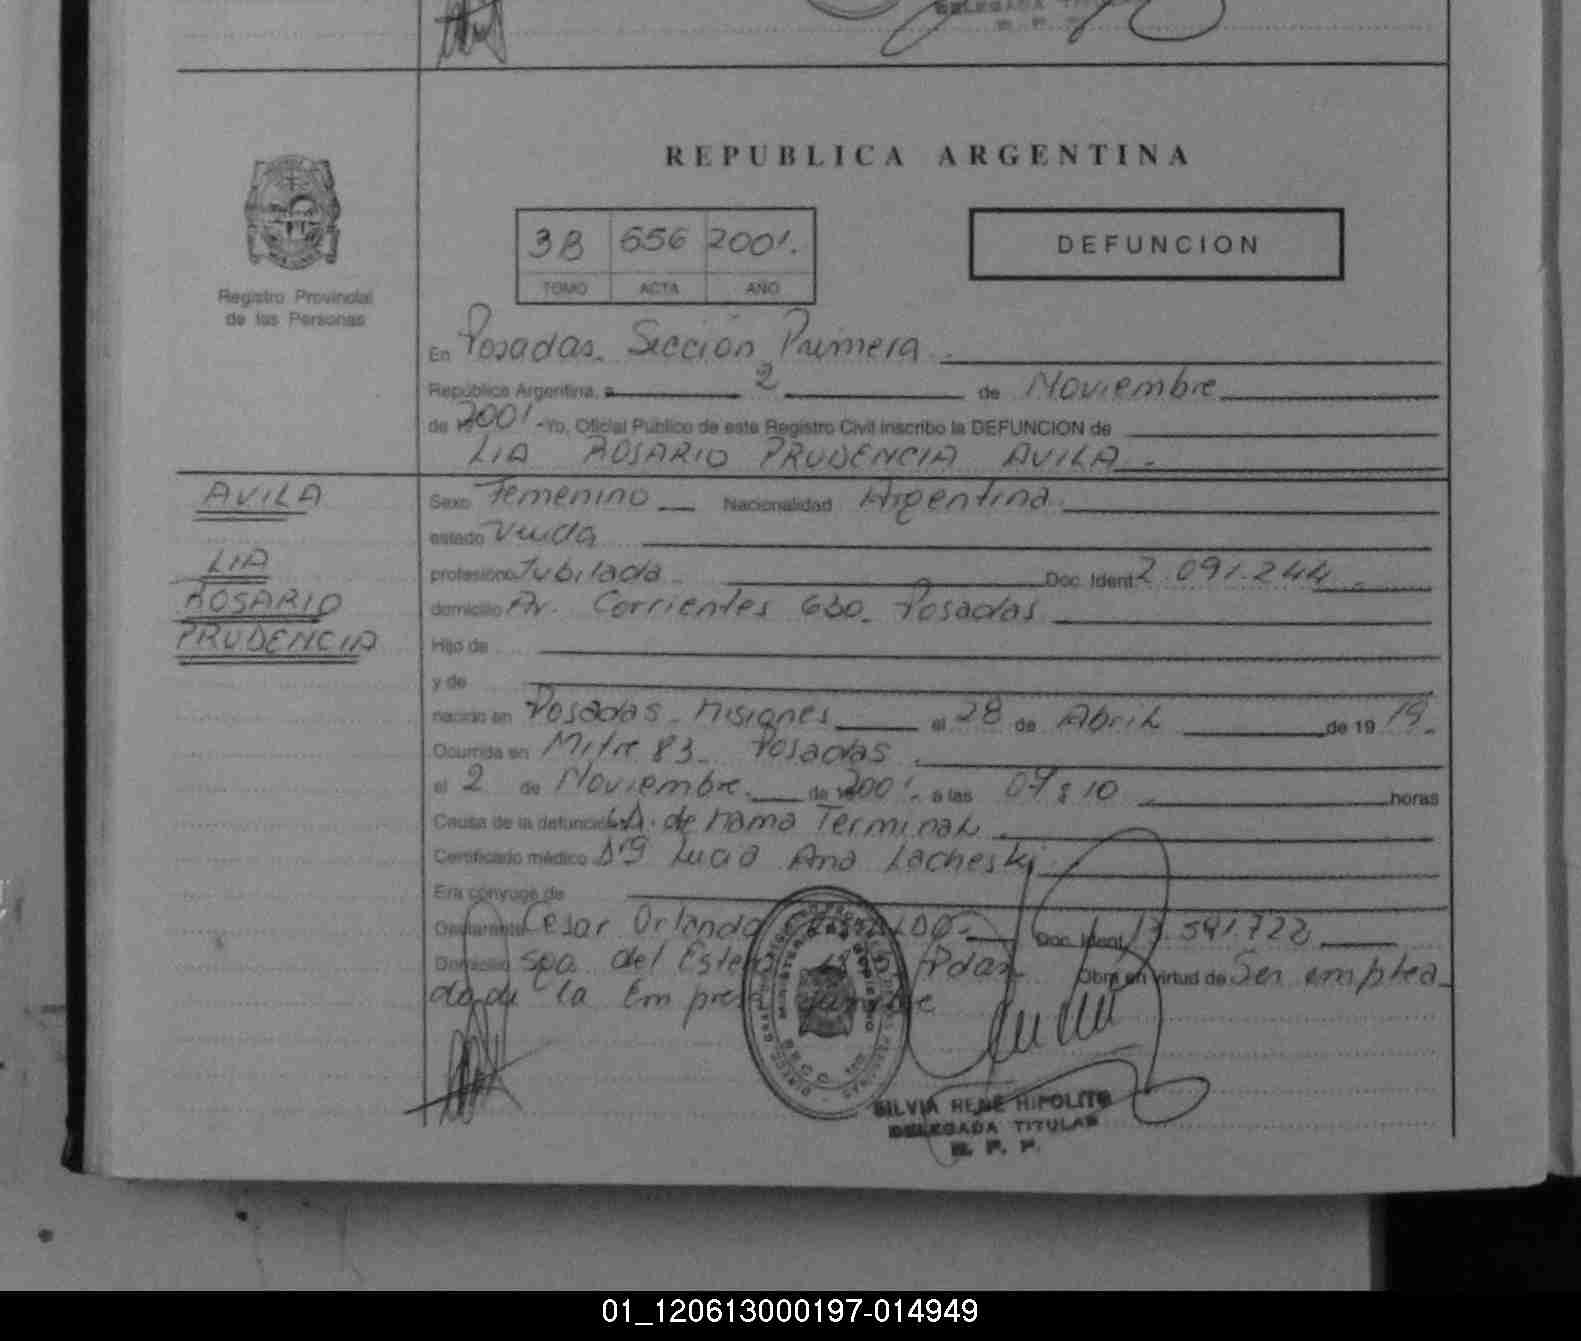 REPUBLICA ARGENTINA
Registro Provincial
de las Personas
3B 656 2001.
TOMO ACTA AÑO
DEFUNCION
En Posadas. Sección Primera
República Argentina, a 2 de Noviembre
de 2001 -Yo, Oficial Público de este Registro Civil inscribo la DEFUNCION de
LIA ROSARIO PRUDENCIA AVILA
AVILA
LIA
ROSARIO
PRUDENCIA
Sexo Femenino Nacionalidad Argentina
estado Viuda
profesión Jubilada Doc. Ident. 2.091.244
domicilio Av. Corrientes 630. Posadas
Hijo de
y de
nacido en Posadas - Misiones el 28 de Abril de 19 19.
Ocurrida en Mitre 83. Posadas
el 2 de Noviembre. de 2001. a las 04:10 horas
Causa de la defunción de mama Terminal
Certificado médico Lucia Ana Lacheski
Era cónyuge de
Declarante Cesar Orlando Doc. Ident. 17.591.722
Domicilio sgo. del Estero Pdas. Obra en virtud de Ser emplea
do de la Empresa
SILVIA RENE HIPOLITO
DELEGADA TITULAR
R. P. P.
01_120613000197-014949